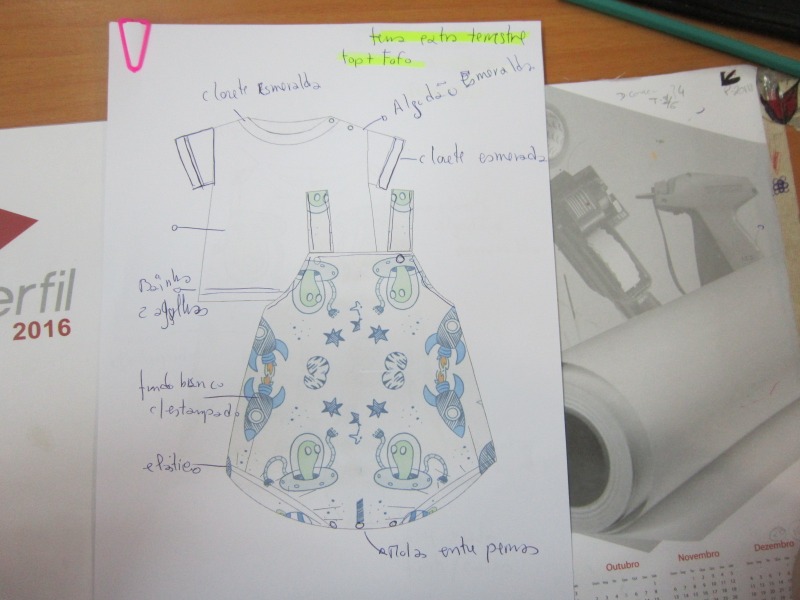 tema extra terrestre
top + Fofo
clarete Esmeralda
Algodão Esmeralda
clarete esmerada
Bainha
2 agulhas
fundo branco
c/ estampado
elástico
Molas entre pernas
erfil
2016
Outubro
Novembro
Dezembro